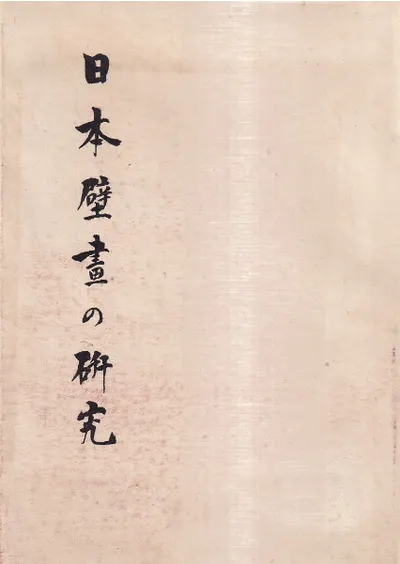 日本壁畫の研究